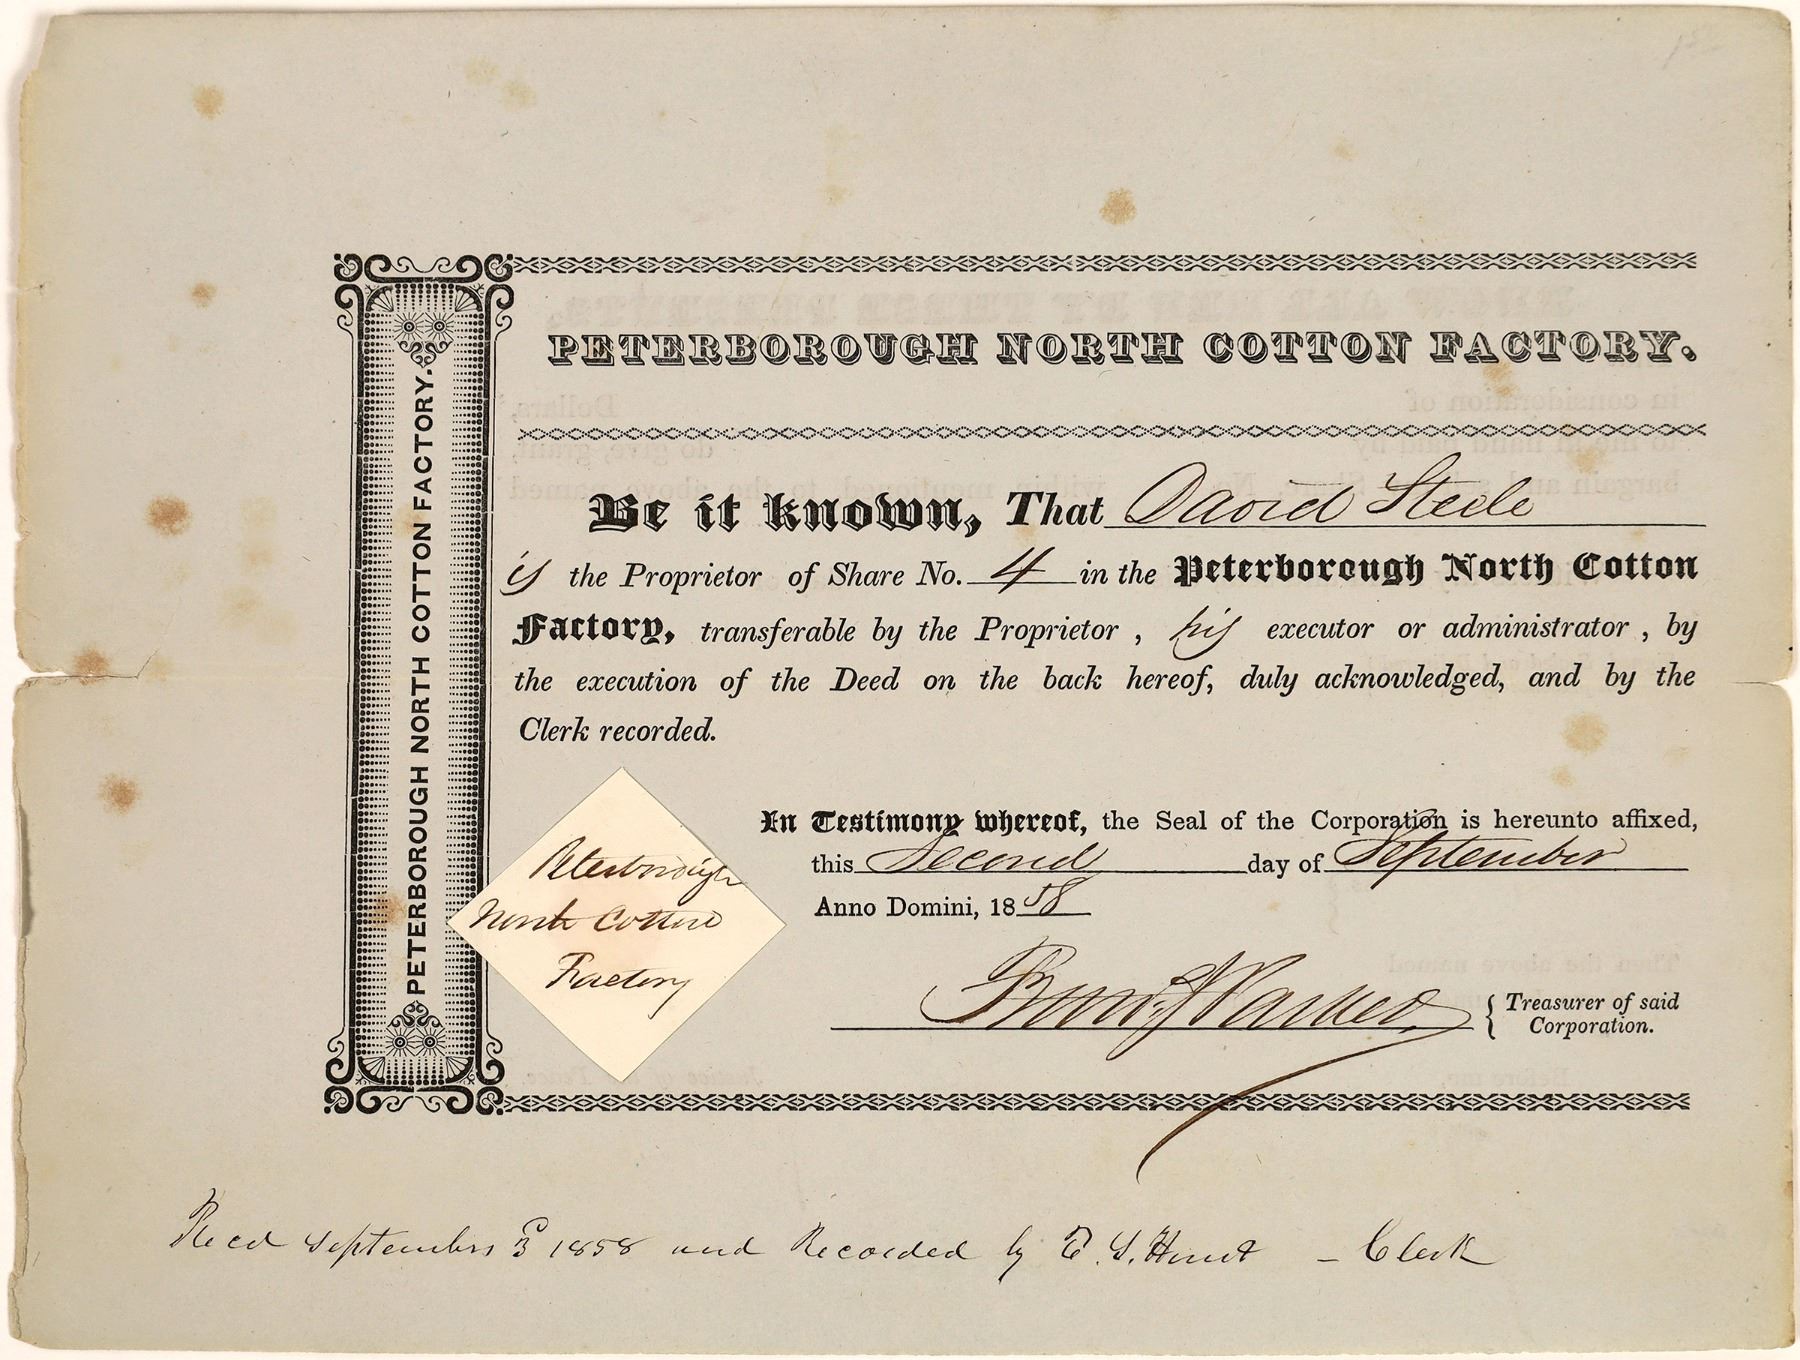 PETERBOROUGH NORTH COTTON FACTORY.
PETERBOROUGH NORTH COTTON FACTORY.
Be it known, That David Steele
is the Proprietor of Share No. 4 in the Peterborough North Cotton
Factory, transferable by the Proprietor , his executor or administrator , by
the execution of the Deed on the back hereof, duly acknowledged, and by the
Clerk recorded.
In Testimony whereof, the Seal of the Corporation is hereunto affixed,
this Second day of September
Anno Domini, 18 58
Peterborough
North Cotton
Factory
Parker
Treasurer of said
Corporation.
Recd September 3 1858 and Recorded by S. Hunt - Clerk